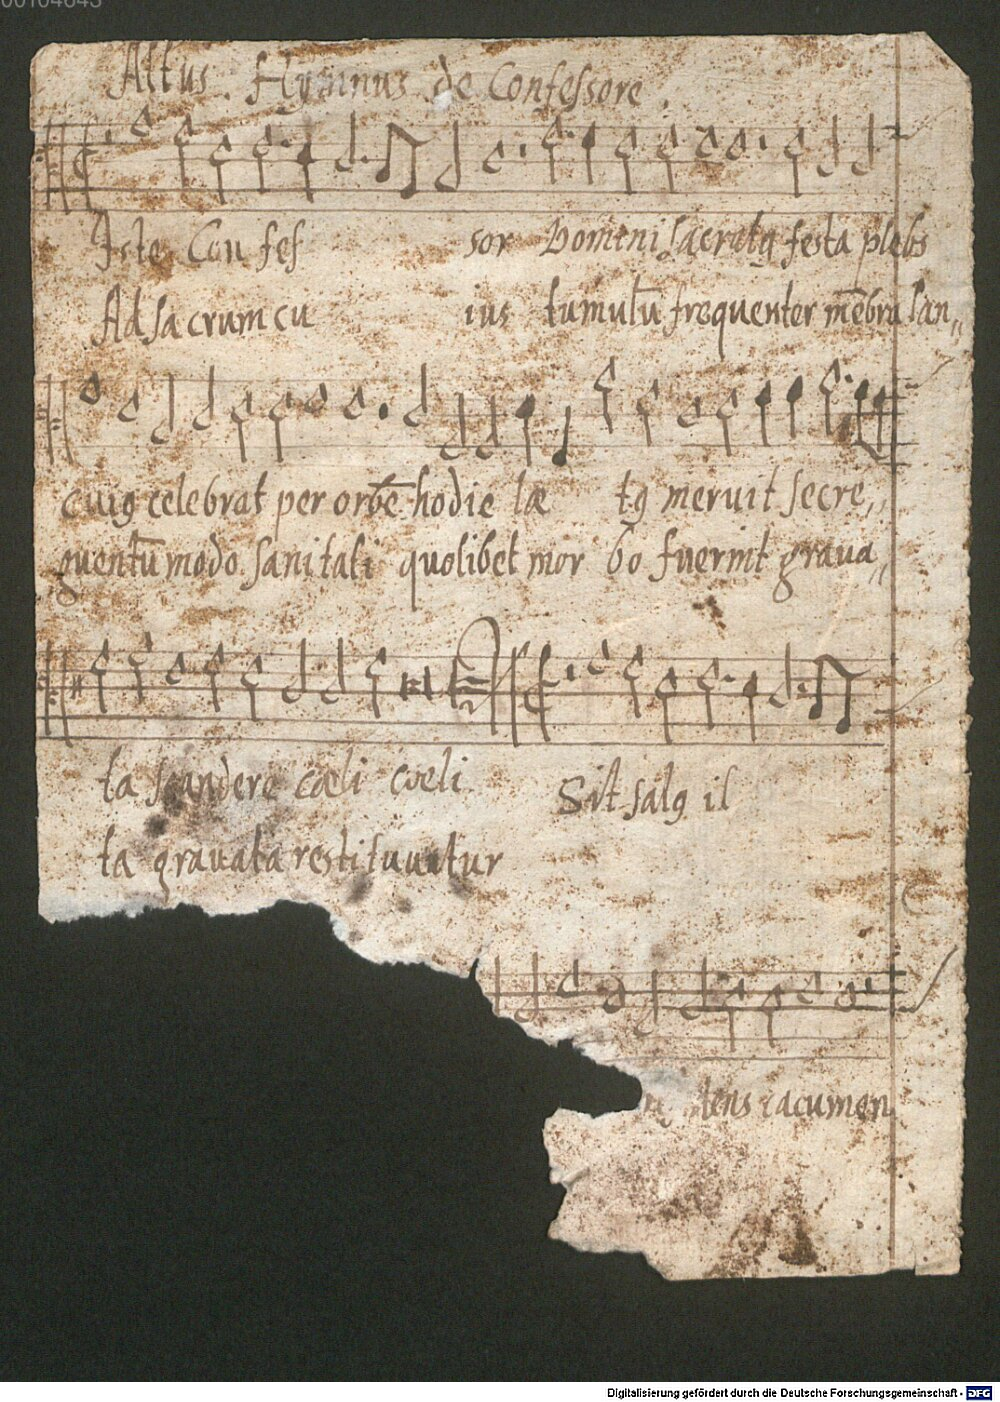 00104643
Altus. Hymnus de Confessore.
Iste Con fes sor Domini sacratꝰ festa plebs
Ad sacrum cu ius tumulū frequenter mēbra san„
cuiꝰ celebrat per orbē hodie læ tꝰ meruit secre„
quentū modo sanitati quolibet mor bo fuerint graua„
ta scandere cœli cœli Sit salꝰ il
ta grauata restituuntur
lens cacumen
Digitalisierung gefördert durch die Deutsche Forschungsgemeinschaft - DFG